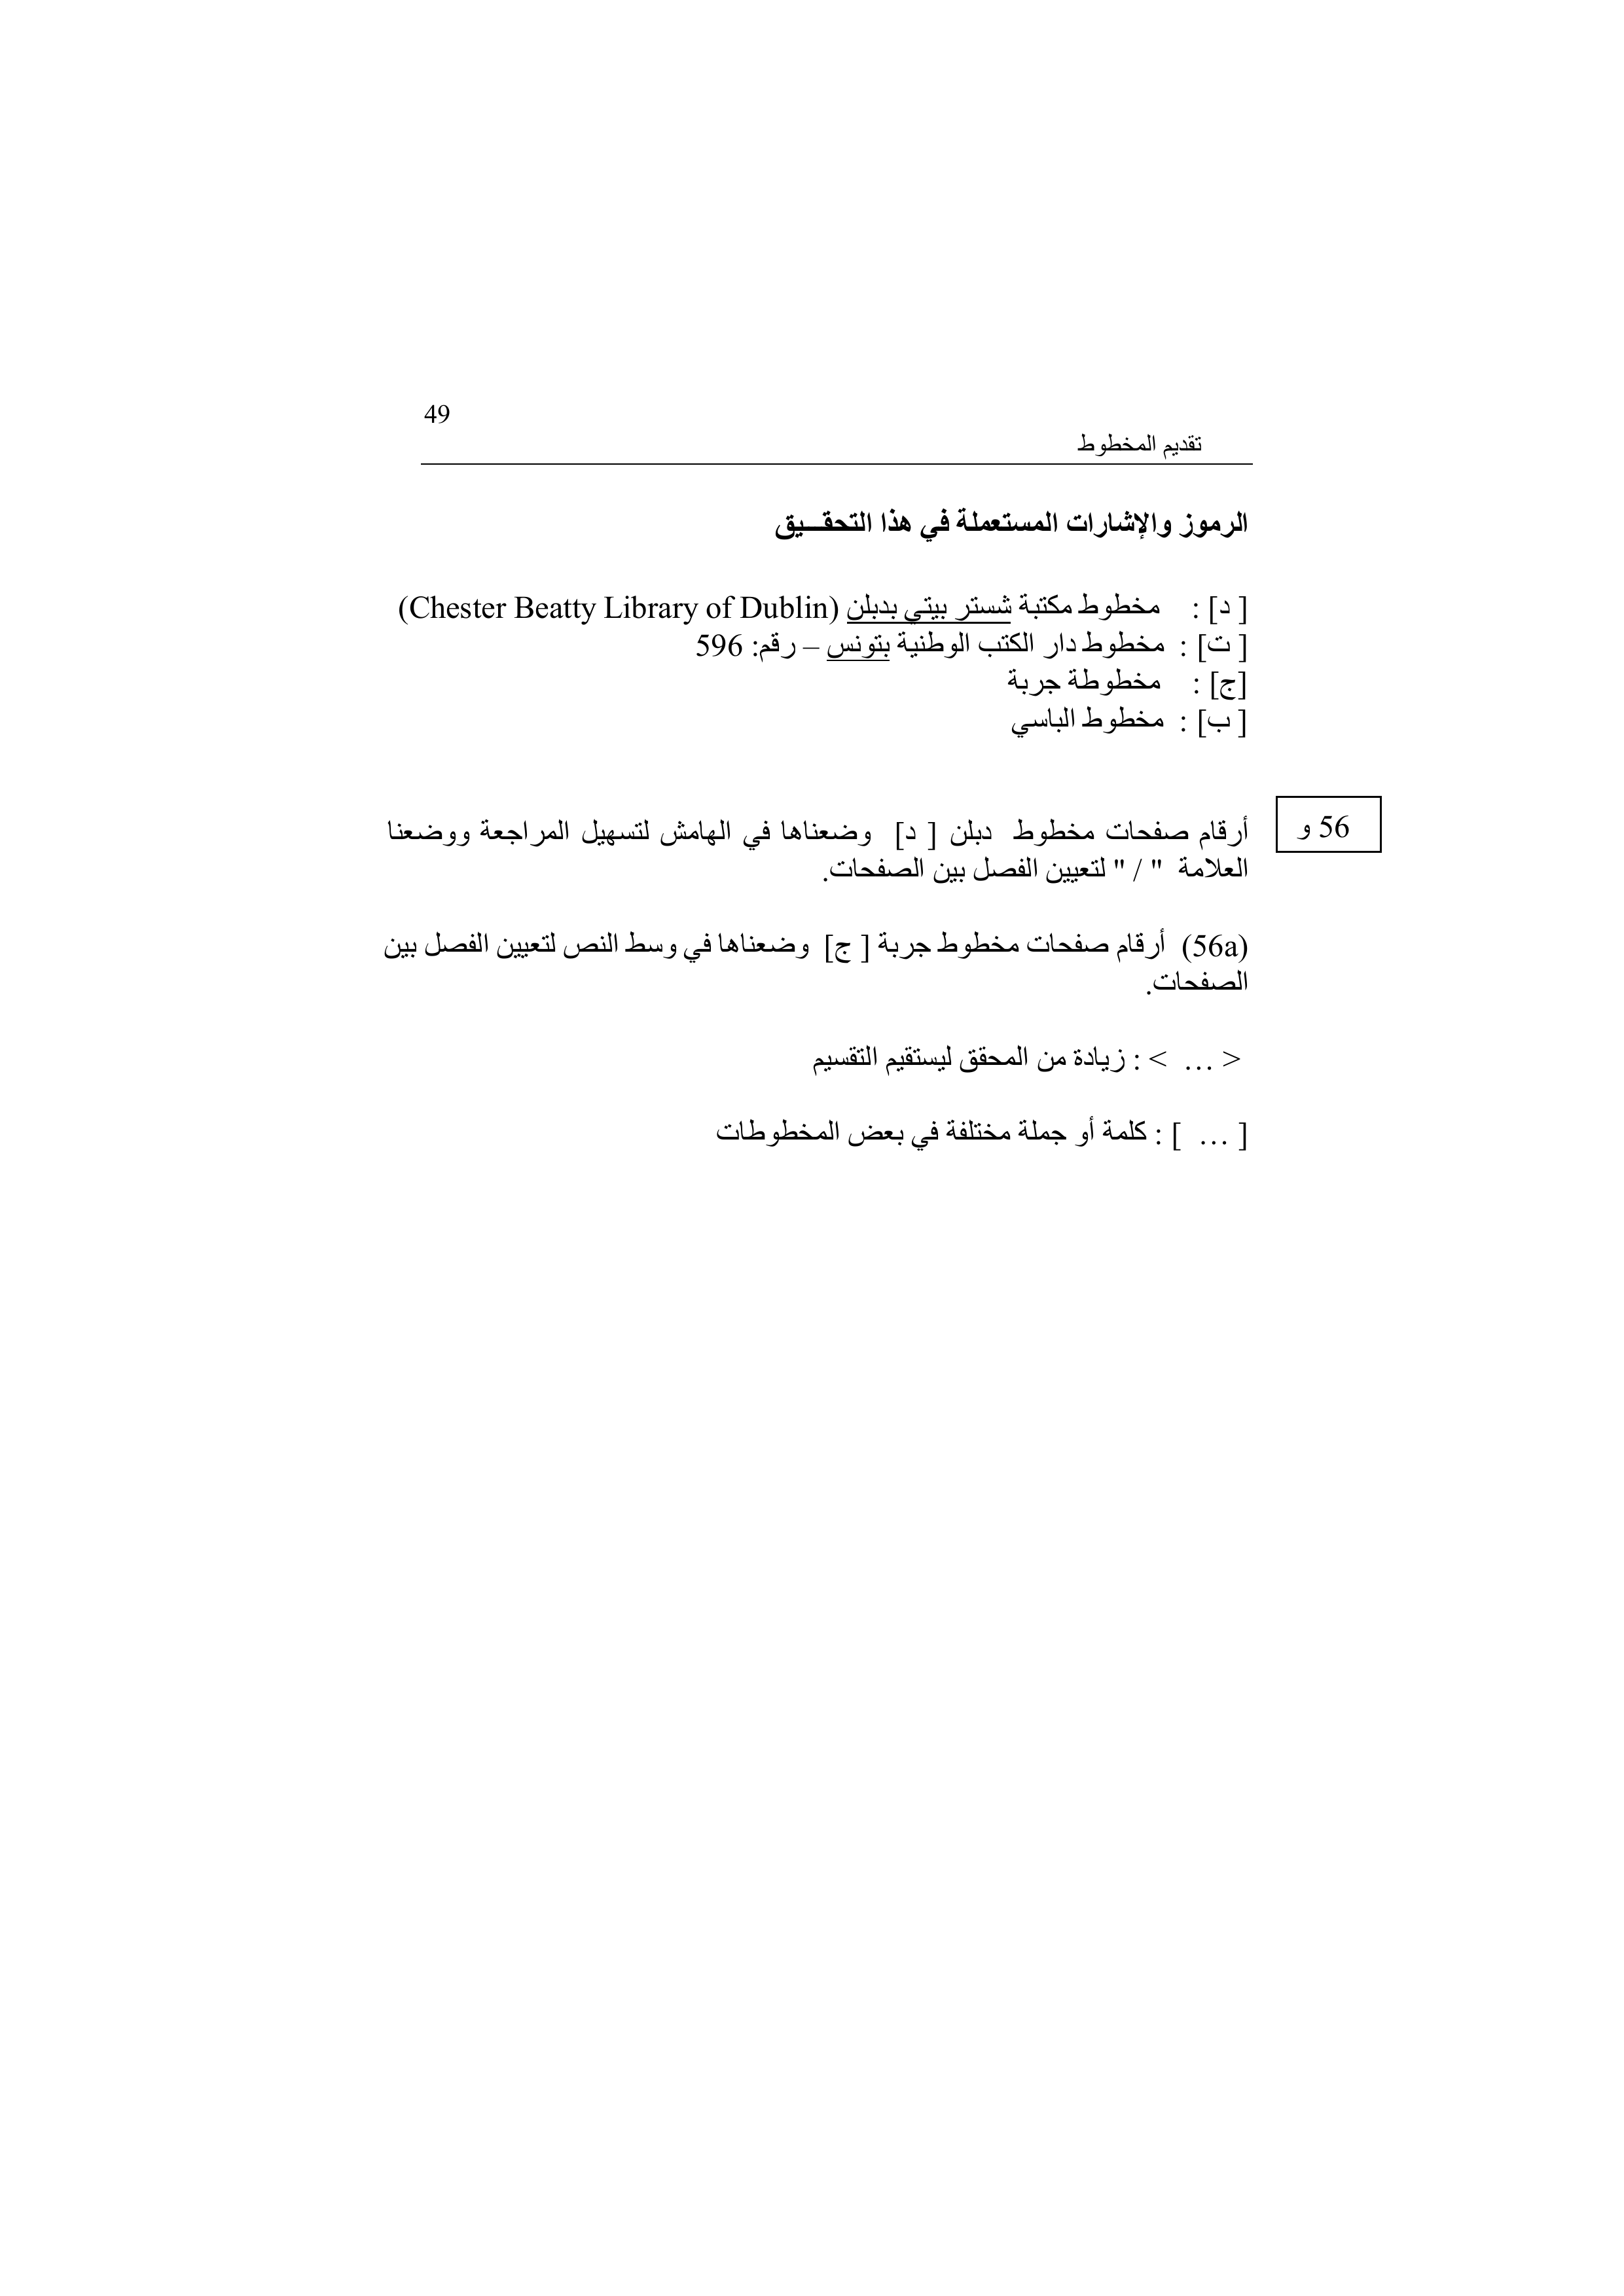 49
تقديم المخطوط
الرموز والإشارات المستعملة في هذا التحقـــيق
[ د] : مخطوط مكتبة شستر بيتي بدبلن (Chester Beatty Library of Dublin)
[ ت] : مخطوط دار الكتب الوطنية بتونس – رقم: 596
[ج] : مخطوطة جربة
[ ب] : مخطوط الباسي
56 و
أرقام صفحات مخطوط دبلن [ د] وضعناها في الهامش لتسهيل المراجعة ووضعنا
العلامة " / " لتعيين الفصل بين الصفحات.
(56a) أرقام صفحات مخطوط جربة [ ج] وضعناها في وسط النص لتعيين الفصل بين
الصفحات.
< … > : زيادة من المحقق ليستقيم التقسيم
[ … ] : كلمة أو جملة مختلفة في بعض المخطوطات